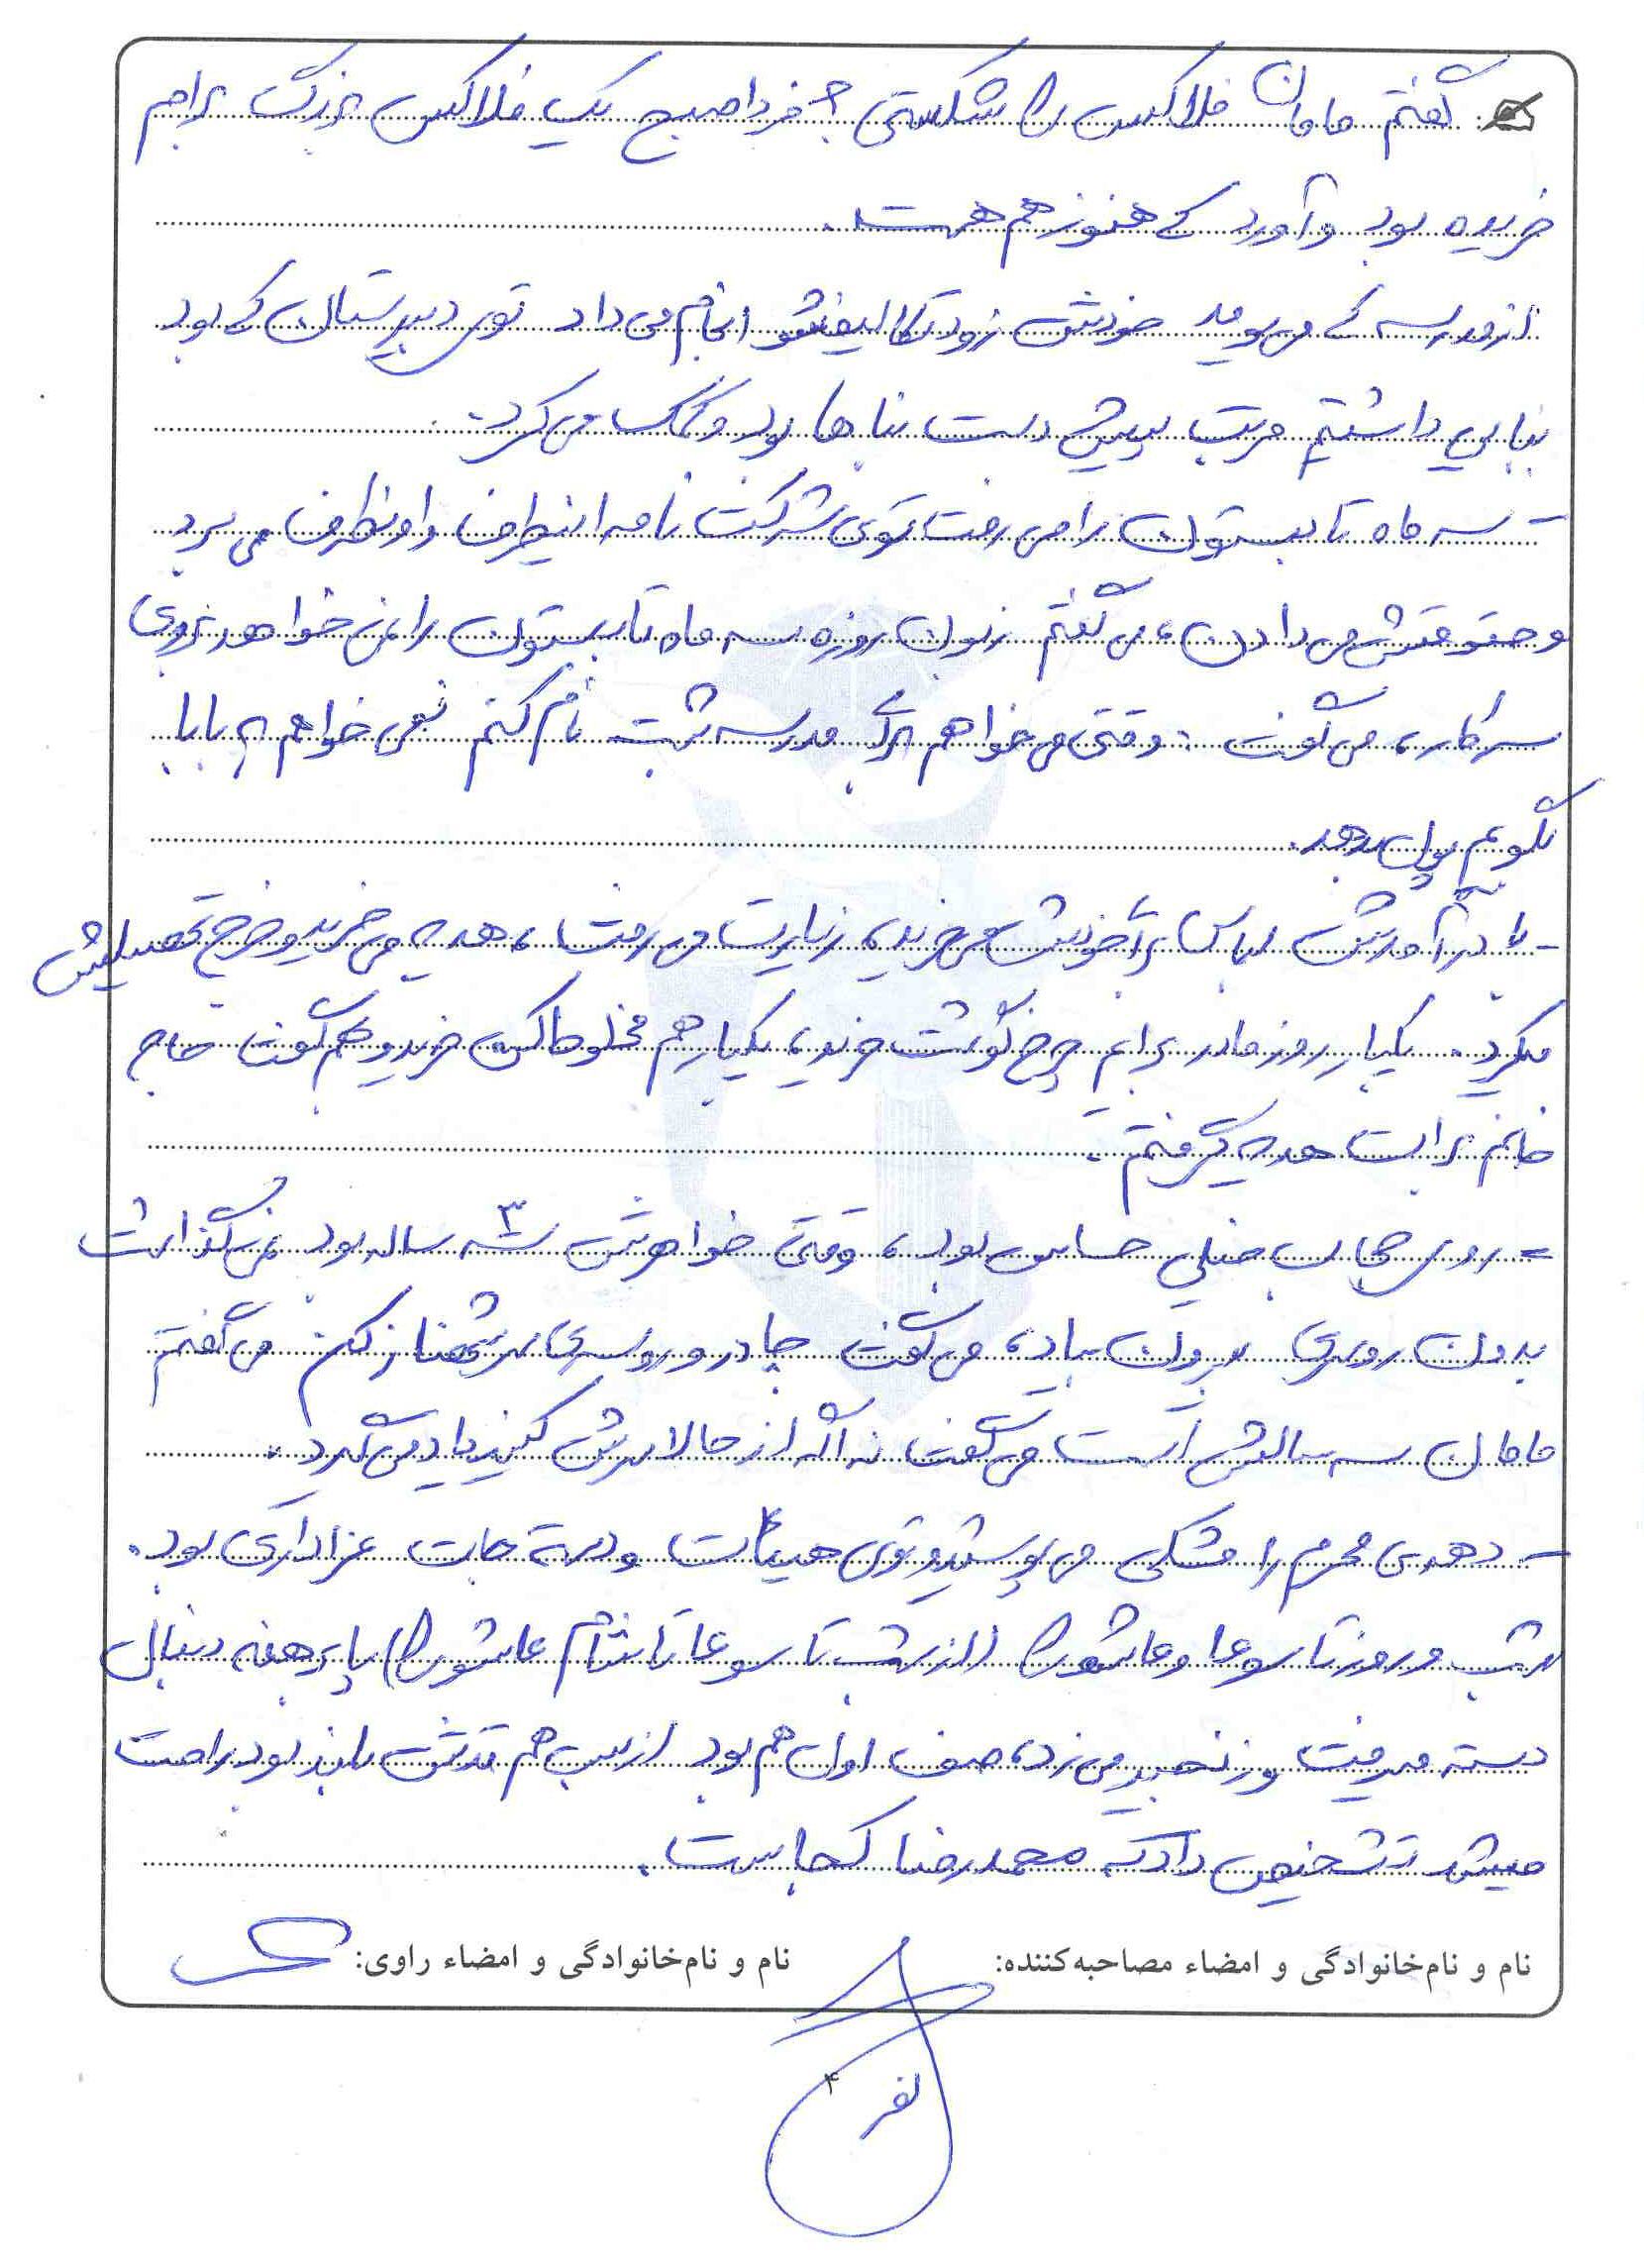 گفتم مامان فلاکس را شکستی؟ فردا صبح یک فلاکس بزرگ برام
خریده بود و آورد که هنوز هم هست.
از مدرسه که می‌یومد خودش زود تکالیفشو انجام می‌داد توی دبیرستان که بود
بنایی داشتیم مرتب پیش دست بناها بود و کمک می‌کرد.
- سه ماه تابستون را می‌رفت توی شرکت نامه اینطرف و اونطرف می‌برد
و حقوقش می‌دادن، می‌گفتم زبون روزه سه ماه تابستون را نمی‌خواهد بروی
سرکار، می‌گفت: وقتی می‌خواهم برای مدرسه ثبت نام کنم نمی‌خواهم به بابا
بگویم پول بدهد.
- با درآمدش لباس برای خودش می‌خرید، زیارت می‌رفت، هدیه می‌خرید و خرج تحصیلیش
میکرد. یکبار روز مادر برایم چرخ گوشت خرید، یکبار هم مخلوط‌کن خرید و هم گفت حاج
خانم برایت هدیه گرفتم.
= روی حجاب خیلی حساس بود، وقتی خواهرش ۳ سه ساله بود نمی‌گذاشت
بدون روسری بیرون بیاد، می‌گفت چادر و روسری سرش کنم می‌گفتم
مامان سه سالش است می‌گفت نه اگه از حالا سرش کنید یاد می‌گیرد.
- دهه‌ی محرم را مشکی می‌پوشید و توی هیئات و دسته‌جات عزاداری بود.
شب و روز تاسوعا و عاشورا (از شب تاسوعا تا شام عاشورا) پا برهنه دنبال
دسته میرفت و زنجیر می‌زد، صف اول هم بود از بس هم قدش بلند بود راحت
میشد تشخیص داد که محمدرضا کجاست.
نام و نام‌خانوادگی و امضاء مصاحبه‌کننده: نام و نام‌خانوادگی و امضاء راوی:
۴